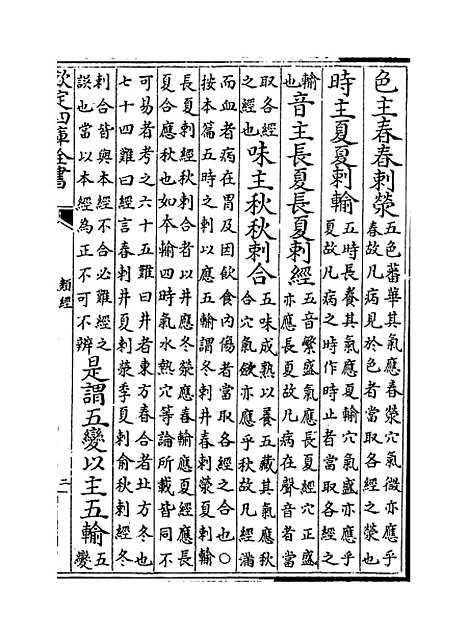 色主春春刺滎五色蕃華其氣應春滎穴氣微亦應乎
春故凡病見於色者當取各經之滎也
時主夏夏刺輸五時長養其氣應夏輸穴氣盛亦應乎
夏故凡病之時作時止者當取各經之
輸也音主長夏長夏刺經五音繁盛氣應長夏經穴正盛
亦應長夏故凡病在聲音者當
取各經之經也味主秋秋刺合五味成熟以養五藏其氣應秋
合穴氣斂亦應乎秋故凡經滿
而血者病在胃及因飲食内傷者當取各經之合也〇
按本篇五時之刺以應五輸謂冬刺井春刺滎夏刺輸
長夏刺經秋刺合者以井應冬滎應春輸應夏經應長
夏合應秋也如本輸四時氣水熱穴等論所載皆同不
可易者考之六十五難曰井者東方春合者北方冬也
七十四難曰經言春刺井夏刺滎季夏刺俞秋刺經冬
刺合皆與本經不合必難經之
誤也當以本經為正不可不辨是謂五變以主五輸五
變
欽定四庫全書
類經